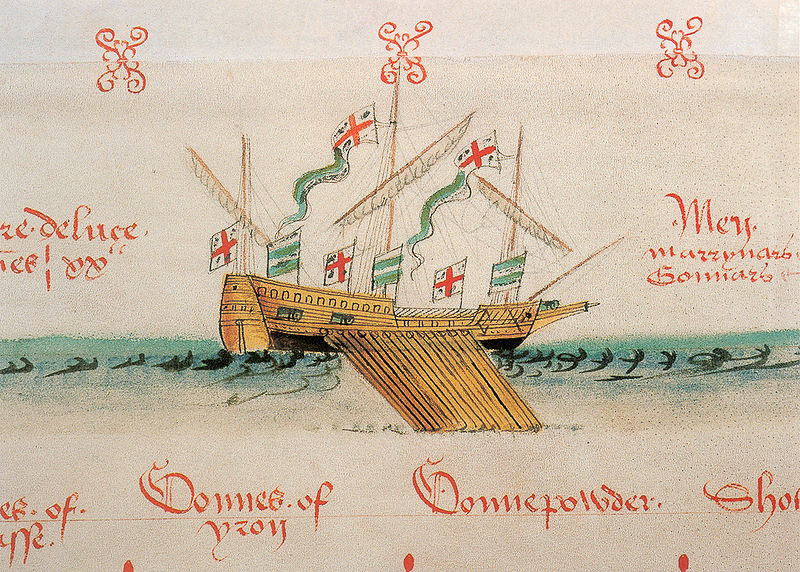 re deluce.
nes xx
Mey.
marrynars
Gonnars
es. of.
asse.
Gonnes. of
yron
Gonnepowder.
Sho